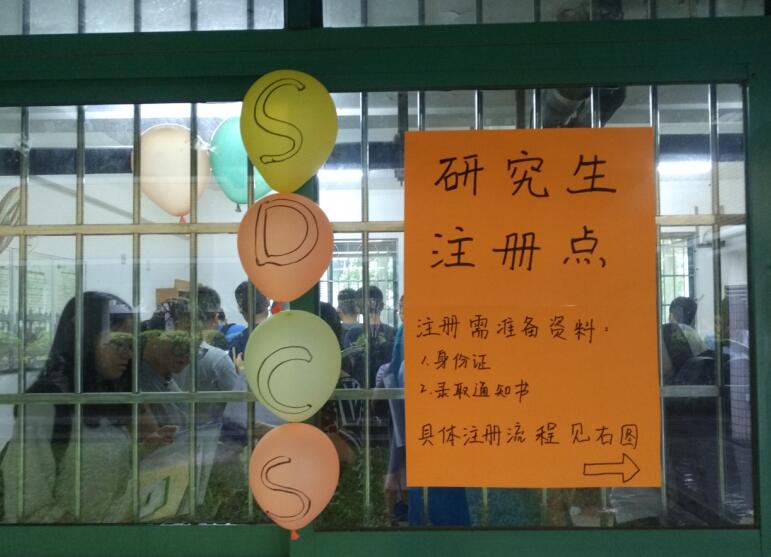 S
D
C
S
研究生
注册点
注册需准备资料：
1.身份证
2.录取通知书
具体注册流程见右图